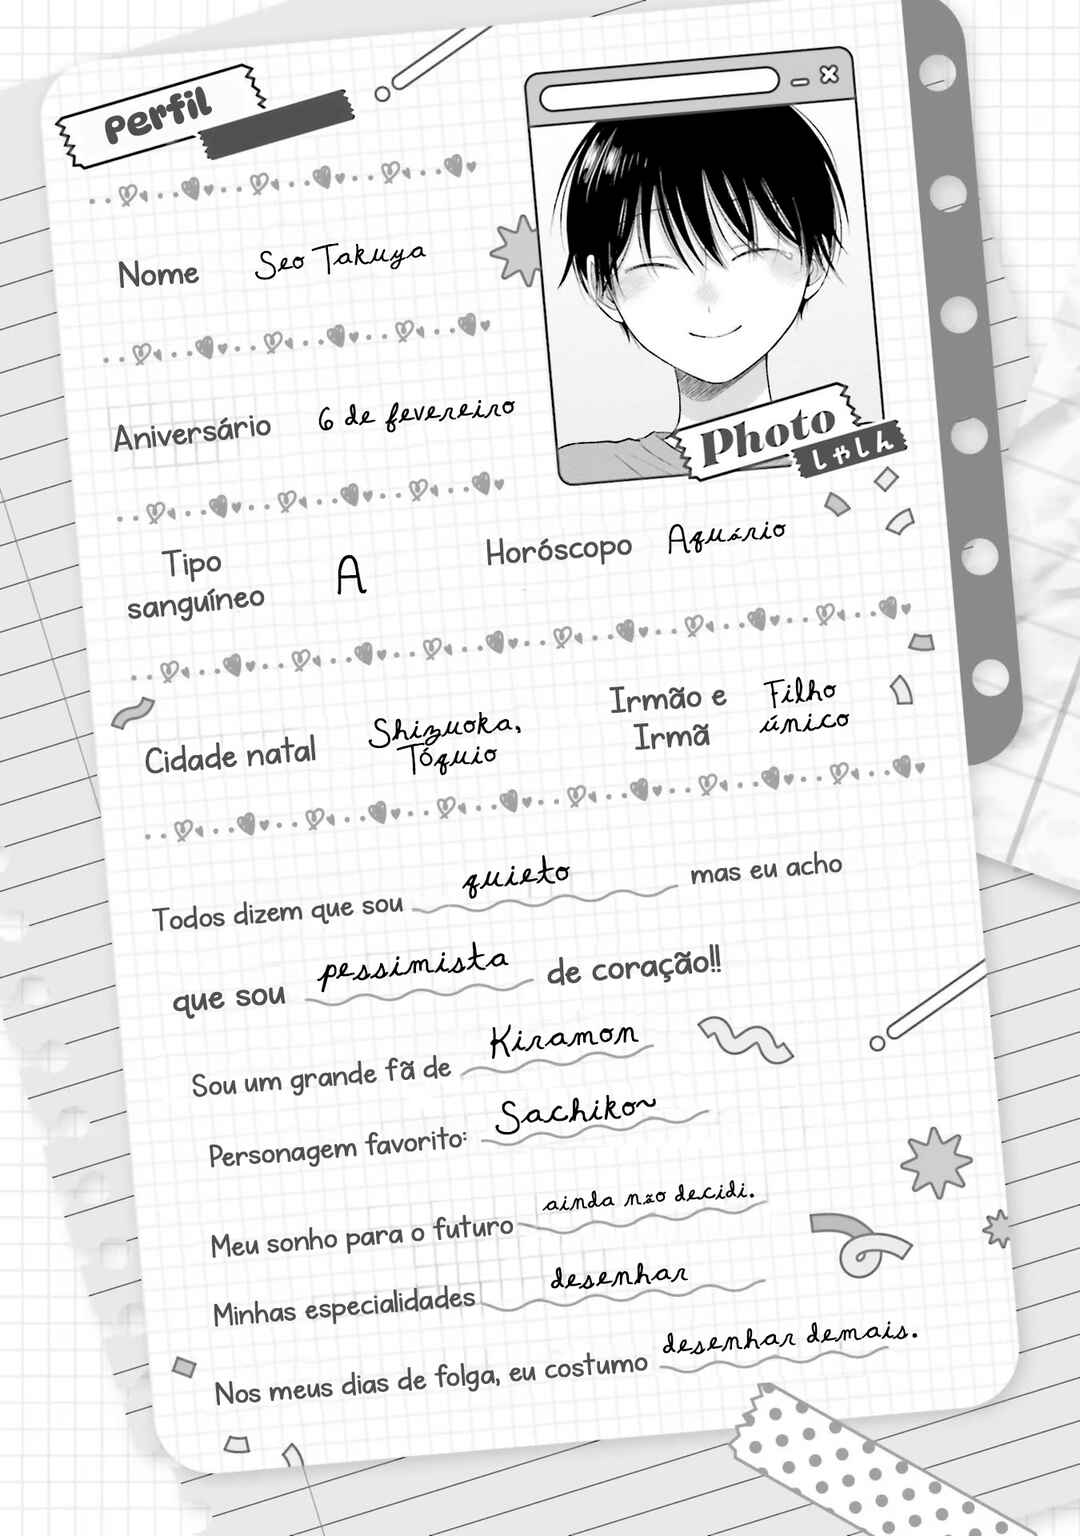 Perfil
Nome Seo Takuya
Aniversário 6 de fevereiro
Photo
しゃしん
Tipo sanguíneo A
Horóscopo Aquário
Cidade natal Shizuoka, Tóquio
Irmão e Irmã Filho único
Todos dizem que sou quieto mas eu acho
que sou pessimista de coração!!
Sou um grande fã de Kiramon
Personagem favorito: Sachiko~
Meu sonho para o futuro ainda não decidi.
Minhas especialidades desenhar
Nos meus dias de folga, eu costumo desenhar demais.